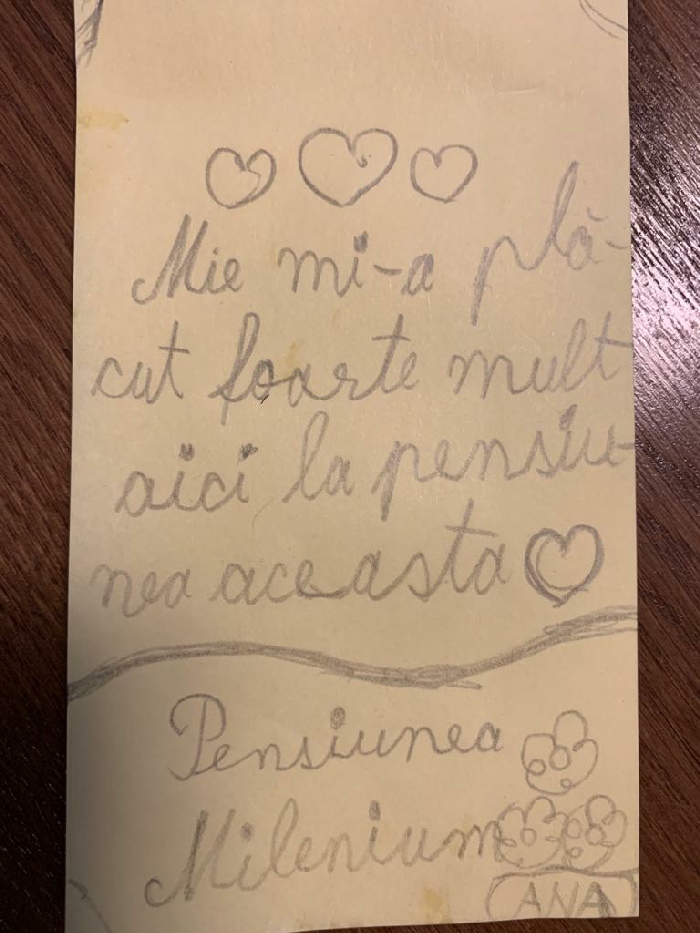 Mie mi-a plă-
cut foarte mult
aici la pensiu-
nea aceasta
Pensiunea
Milenium
ANA